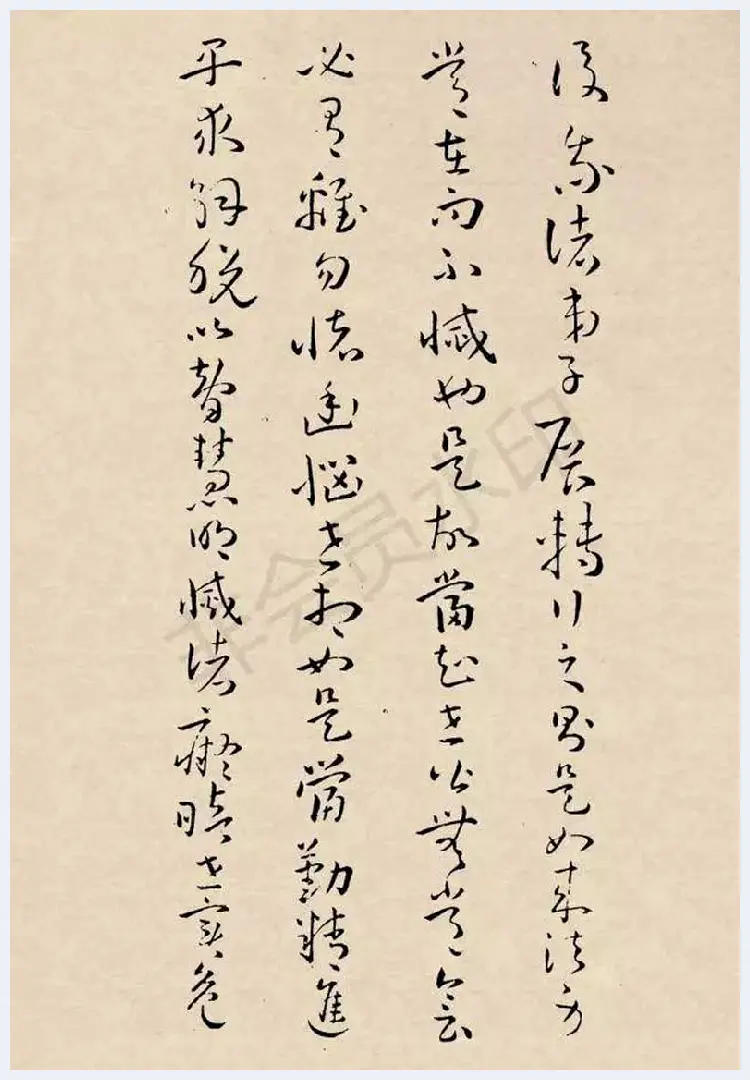 後我諸弟子展轉行之則是如来法身
常在而不滅也是故當知世皆無常會
必有離勿懷憂惱世相如是當勤精進
早求解脱以智慧明滅諸癡暗世實危
非会员水印